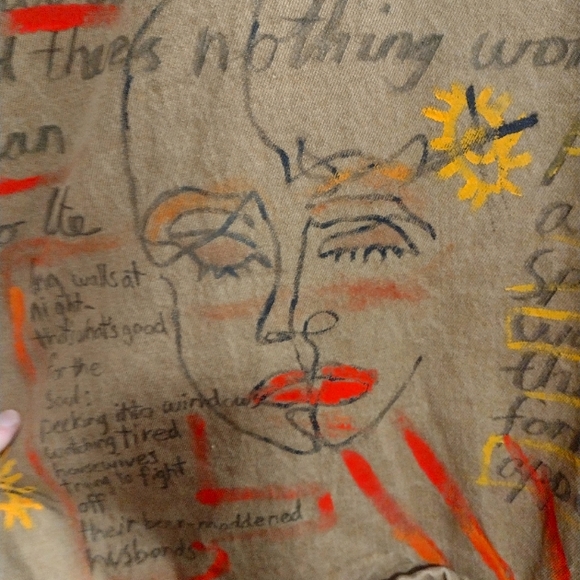 d there's nothing wor
an
to the
long walks at
night—
that's what's good
for the
soul:
peeking into windows
watching tired
housewives
trying to fight
off
their beer-maddened
husbands.
a
sp
thi
for
appo